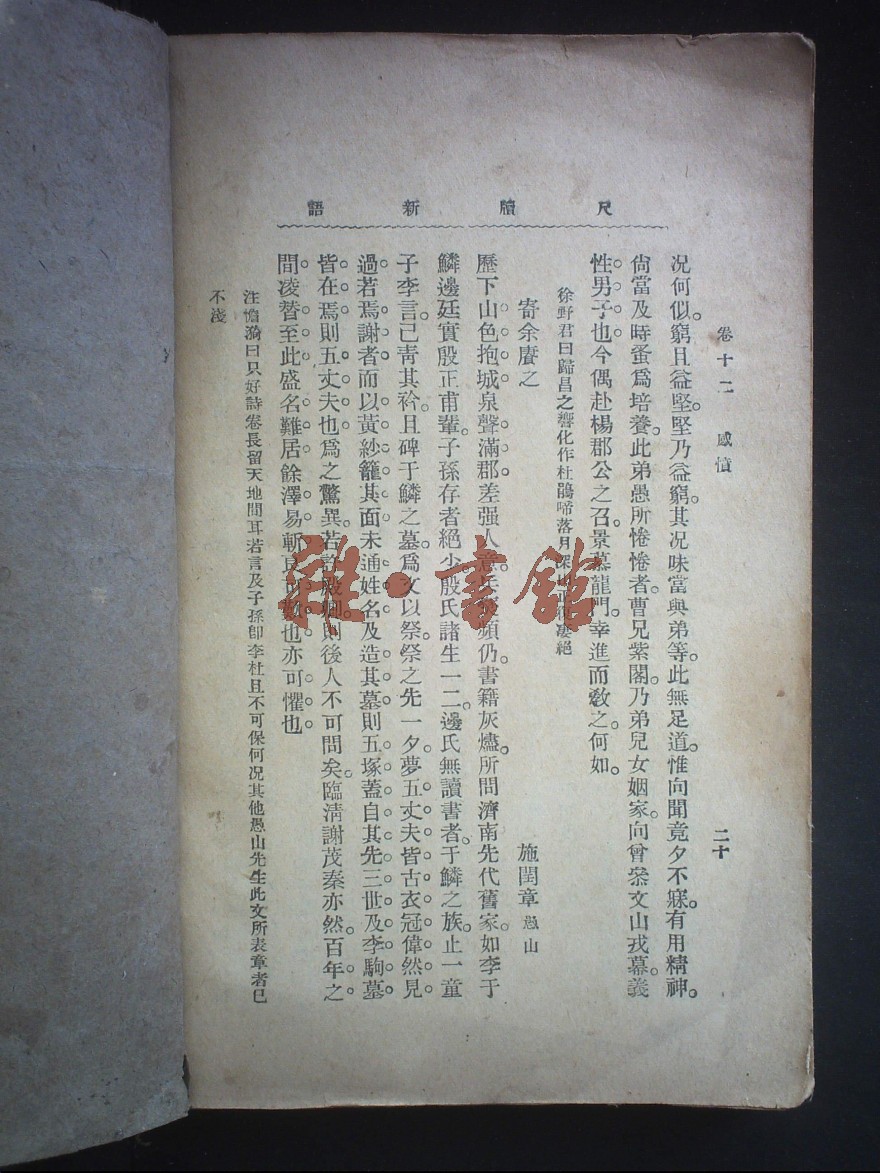 尺牘新語
卷十二　感憤　二十
况何似。窮且益堅。堅乃益窮。其况味當與弟等。此無足道。惟向聞竟夕不寐。有用精神。
尙當及時蚤爲培養。此弟愚所惓惓者。曹兄紫閣。乃弟兒女姻家。向曾叅文山戎幕。義
性男子也。今偶赴楊郡公之召。景慕龍門。幸進而敎之。何如。
徐野君曰歸昌之響化作杜鵑啼落月深凄絕
寄余賡之　施閏章愚山
歷下山色抱城。泉聲滿郡。差强人意。兵燹頻仍。書籍灰燼。所問濟南先代舊家。如李于
鱗邊廷實殷正甫輩。子孫存者絕少。殷氏諸生一二。邊氏無讀書者。于鱗之族。止一童
子李言。已靑其衿。且碑于鱗之墓。爲文以祭。祭之先一夕。夢五丈夫。皆古衣冠偉然。見
過若焉。謝者而以黃紗籠其面。未通姓名。及造其墓。則五塚。蓋自其先三世及李駒墓
皆在焉。則五丈夫也。爲之驚異。若許殿卿。則後人不可問矣。臨淸謝茂秦亦然。百年之
間。凌替至此。盛名難居。餘澤易斬。可歎也。亦可懼也。
汪憺漪曰只好詩卷長留天地間耳若言及子孫卽李杜且不可保何况其他愚山先生此文所表章者已
不淺
雜·書館